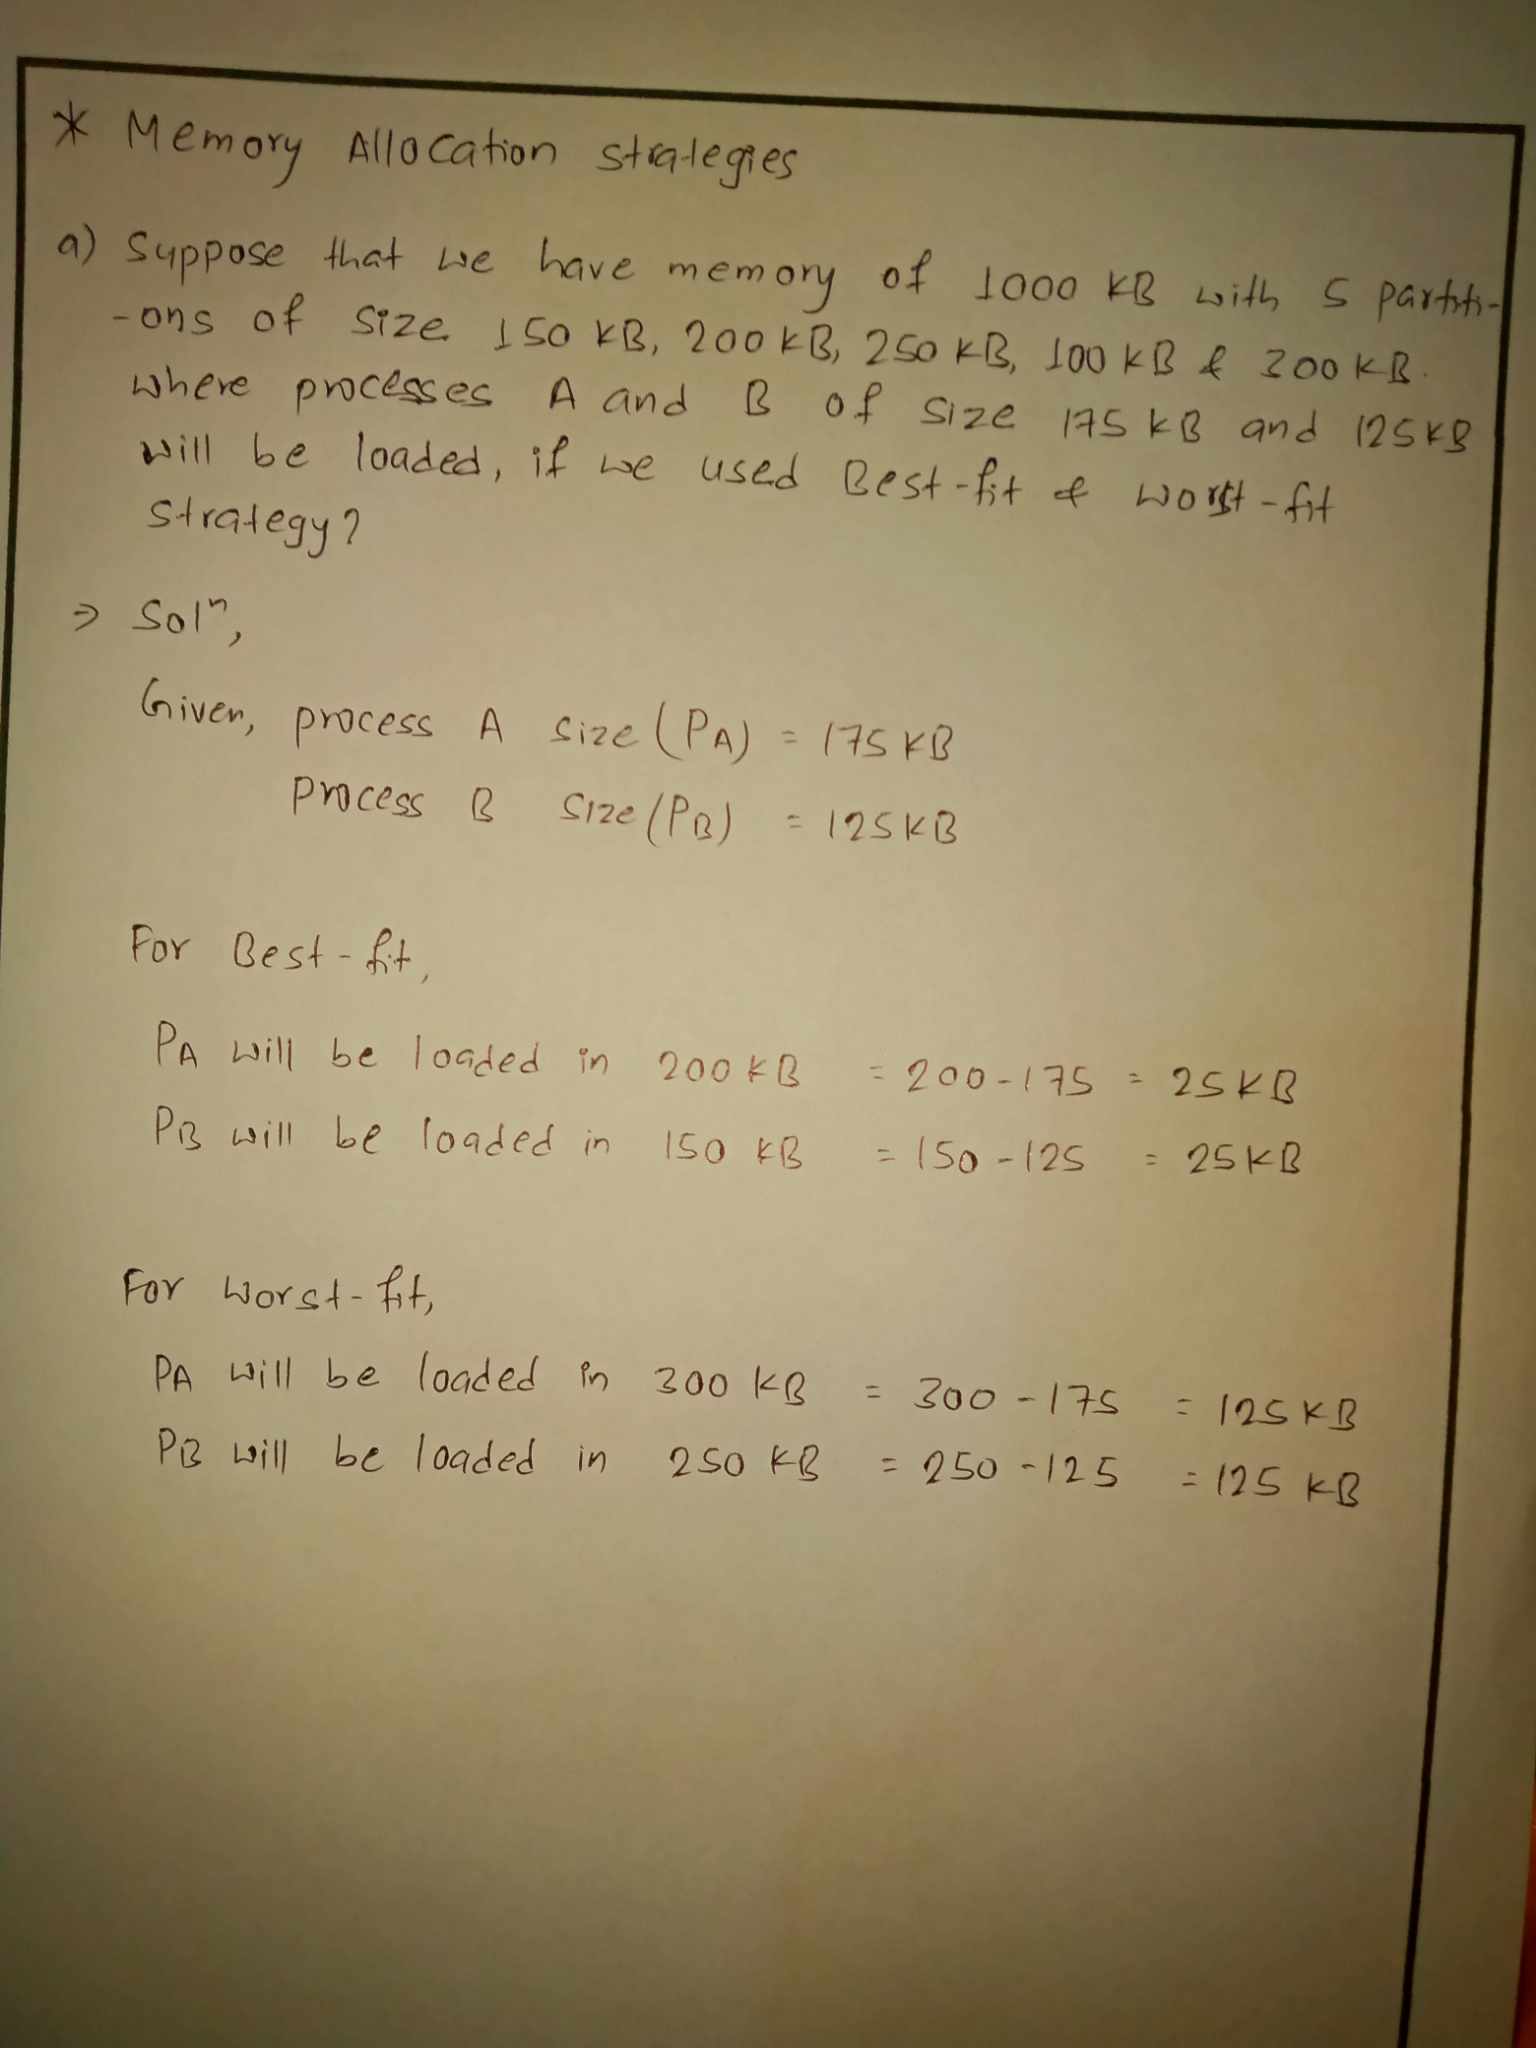 * Memory Allocation strategies
a) Suppose that we have memory of 1000 KB with 5 partiti-
-ons of size 150 KB, 200 KB, 250 KB, 100 KB & 300 KB.
where processes A and B of size 175 KB and 125 KB
will be loaded, if we used Best-fit & worst-fit
strategy?
⇒ Solⁿ,
Given, process A size (PA) = 175 KB
process B size (PB) = 125 KB
For Best-fit,
PA will be loaded in 200 KB = 200-175 = 25 KB
PB will be loaded in 150 KB = 150-125 = 25 KB
For worst-fit,
PA will be loaded in 300 KB = 300-175 = 125 KB
PB will be loaded in 250 KB = 250-125 = 125 KB